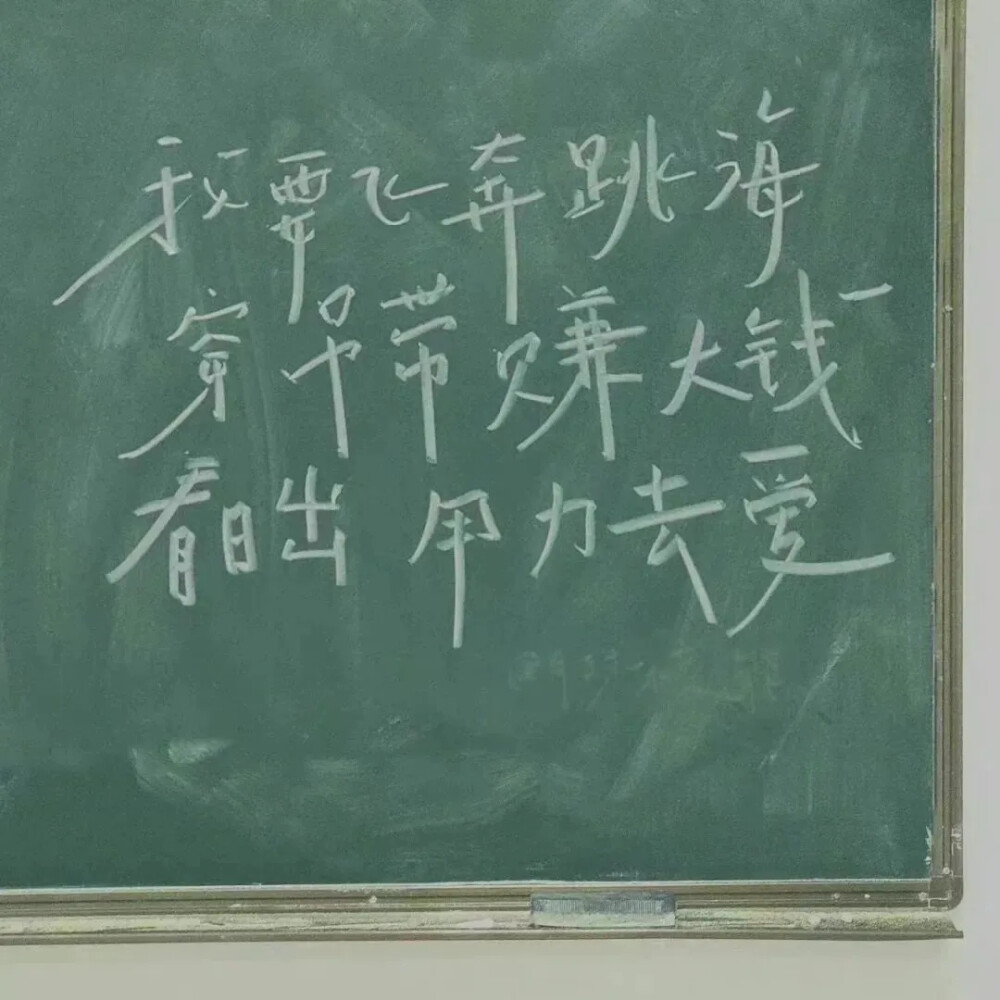 我要飞奔跳海
穿吊带赚大钱
看日出用力去爱